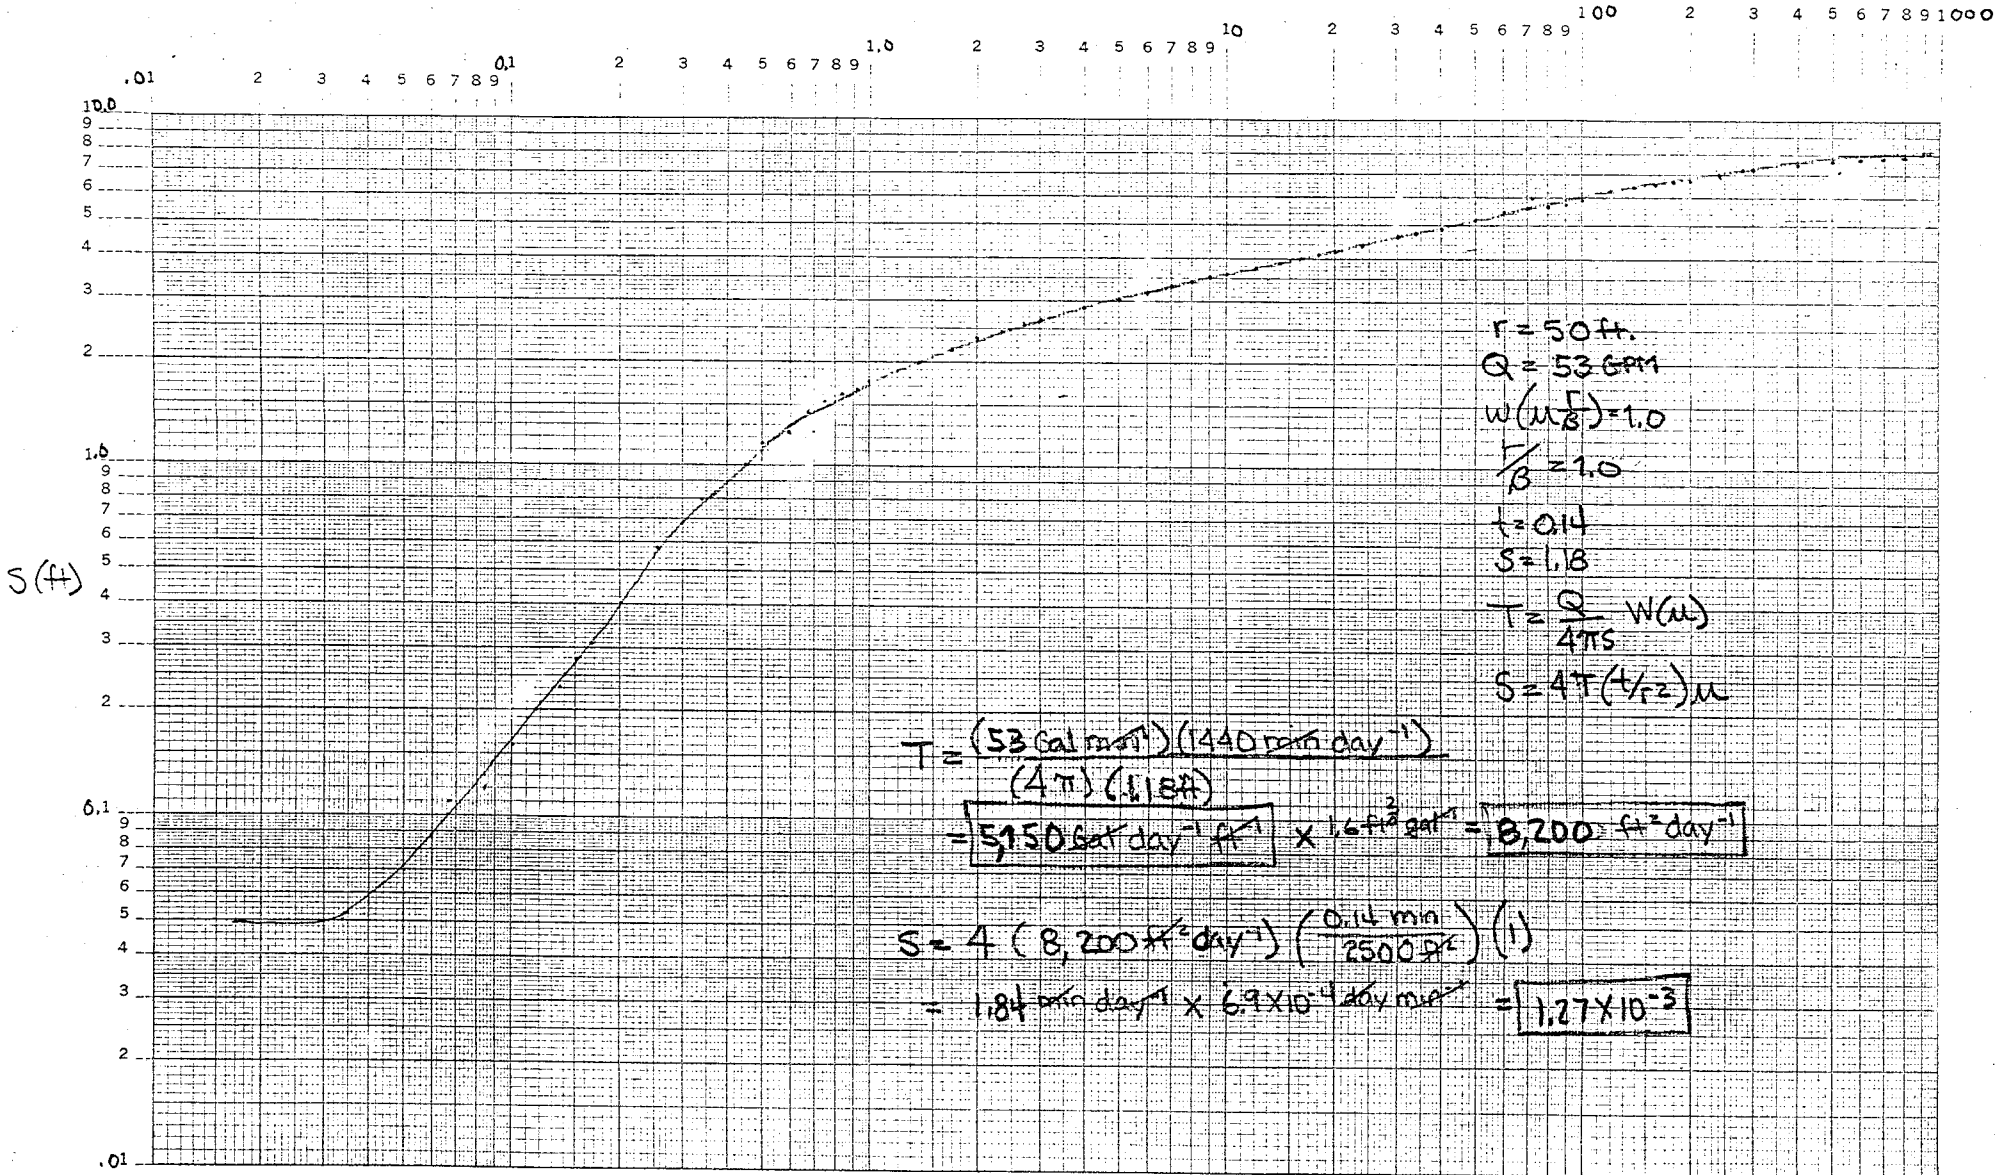 100 2 3 4 5 6 7 8 9 1000
10 2 3 4 5 6 7 8 9
1.0 2 3 4 5 6 7 8 9
.01 2 3 4 5 6 7 8 9 0.1 2 3 4 5 6 7 8 9
10.0
9
8
7
6
5
4
3
2
1.0
9
8
7
6
5
4
3
2
0.1
9
8
7
6
5
4
3
2
.01
S (ft)
r = 50 ft.
Q = 53 GPM
W(μ r/B) = 1.0
r/B = 1.0
t = 0.14
S = 1.18
T = Q/4πs W(μ)
S = 4T(t/r2)μ
T = (53 Gal min-1)(1440 min day-1)
(4π) (1.18ft)
= 5,150 Gal day-1 ft-1 × 1.6 ft2 gal-1 = 8,200 ft2 day-1
S = 4 (8,200 ft2 day-1) (0.14 min / 2500 ft2) (1)
= 1.84 min day-1 × 6.9×10-4 day min-1 = 1.27×10-3